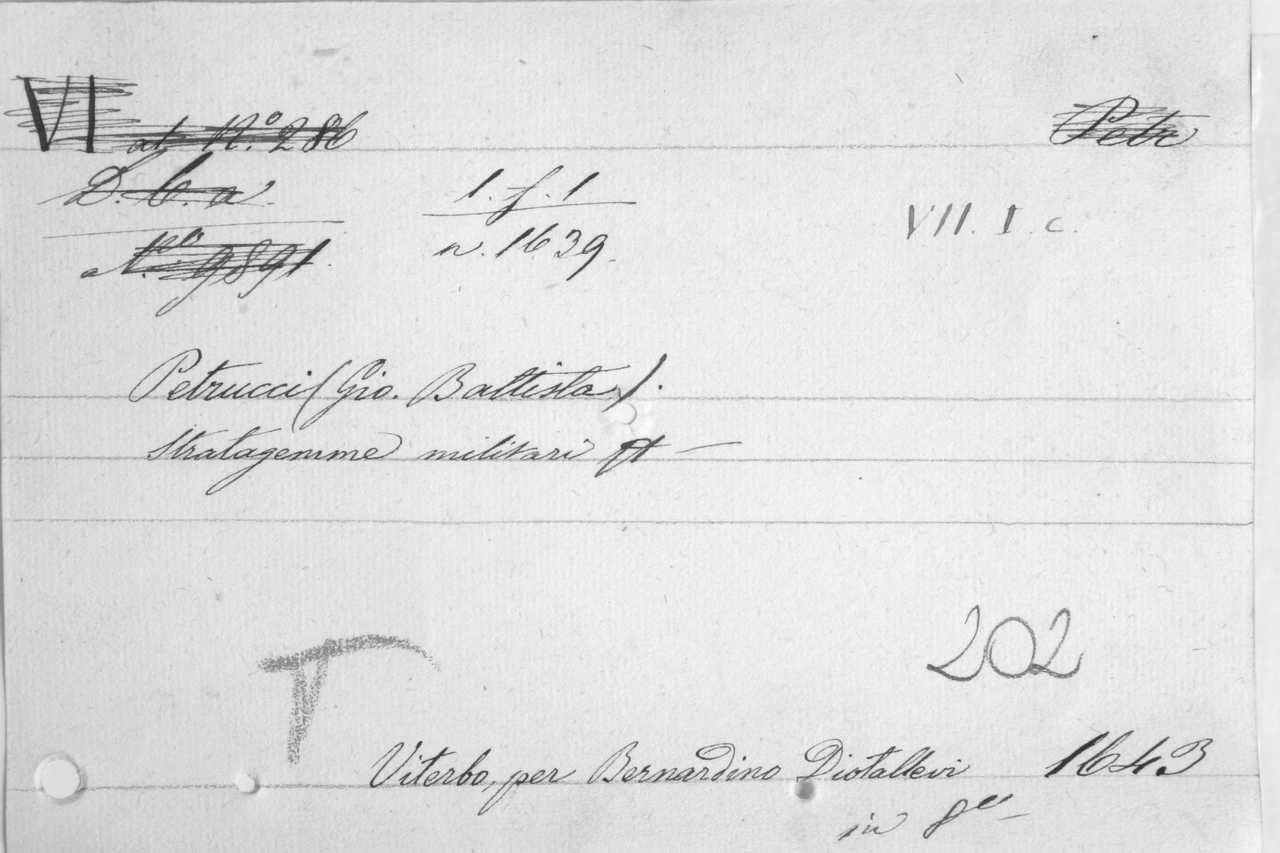 VI
at N.º 286
Petr
D. C. a.
1. f. 1
VII. I. c.
N.º 9891.
n. 1639.
Petrucci (Gio. Battista).
Stratagemme militari
T
202
Viterbo, per Bernardino Diotallevi 1643
in 8º